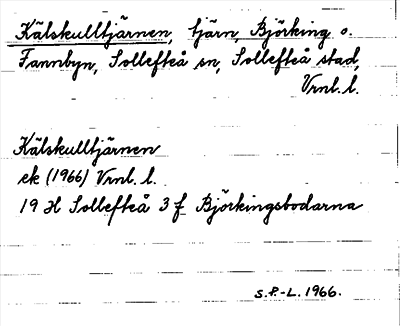 Kälskulltjärnen, tjärn, Björking o.
Fannbyn, Sollefteå sn, Sollefteå stad,
Vrnl. l.
Kälskulltjärnen
ek (1966) Vrnl. l.
19 H Sollefteå 3 f Björkingsbodarna
S.P.-L. 1966.